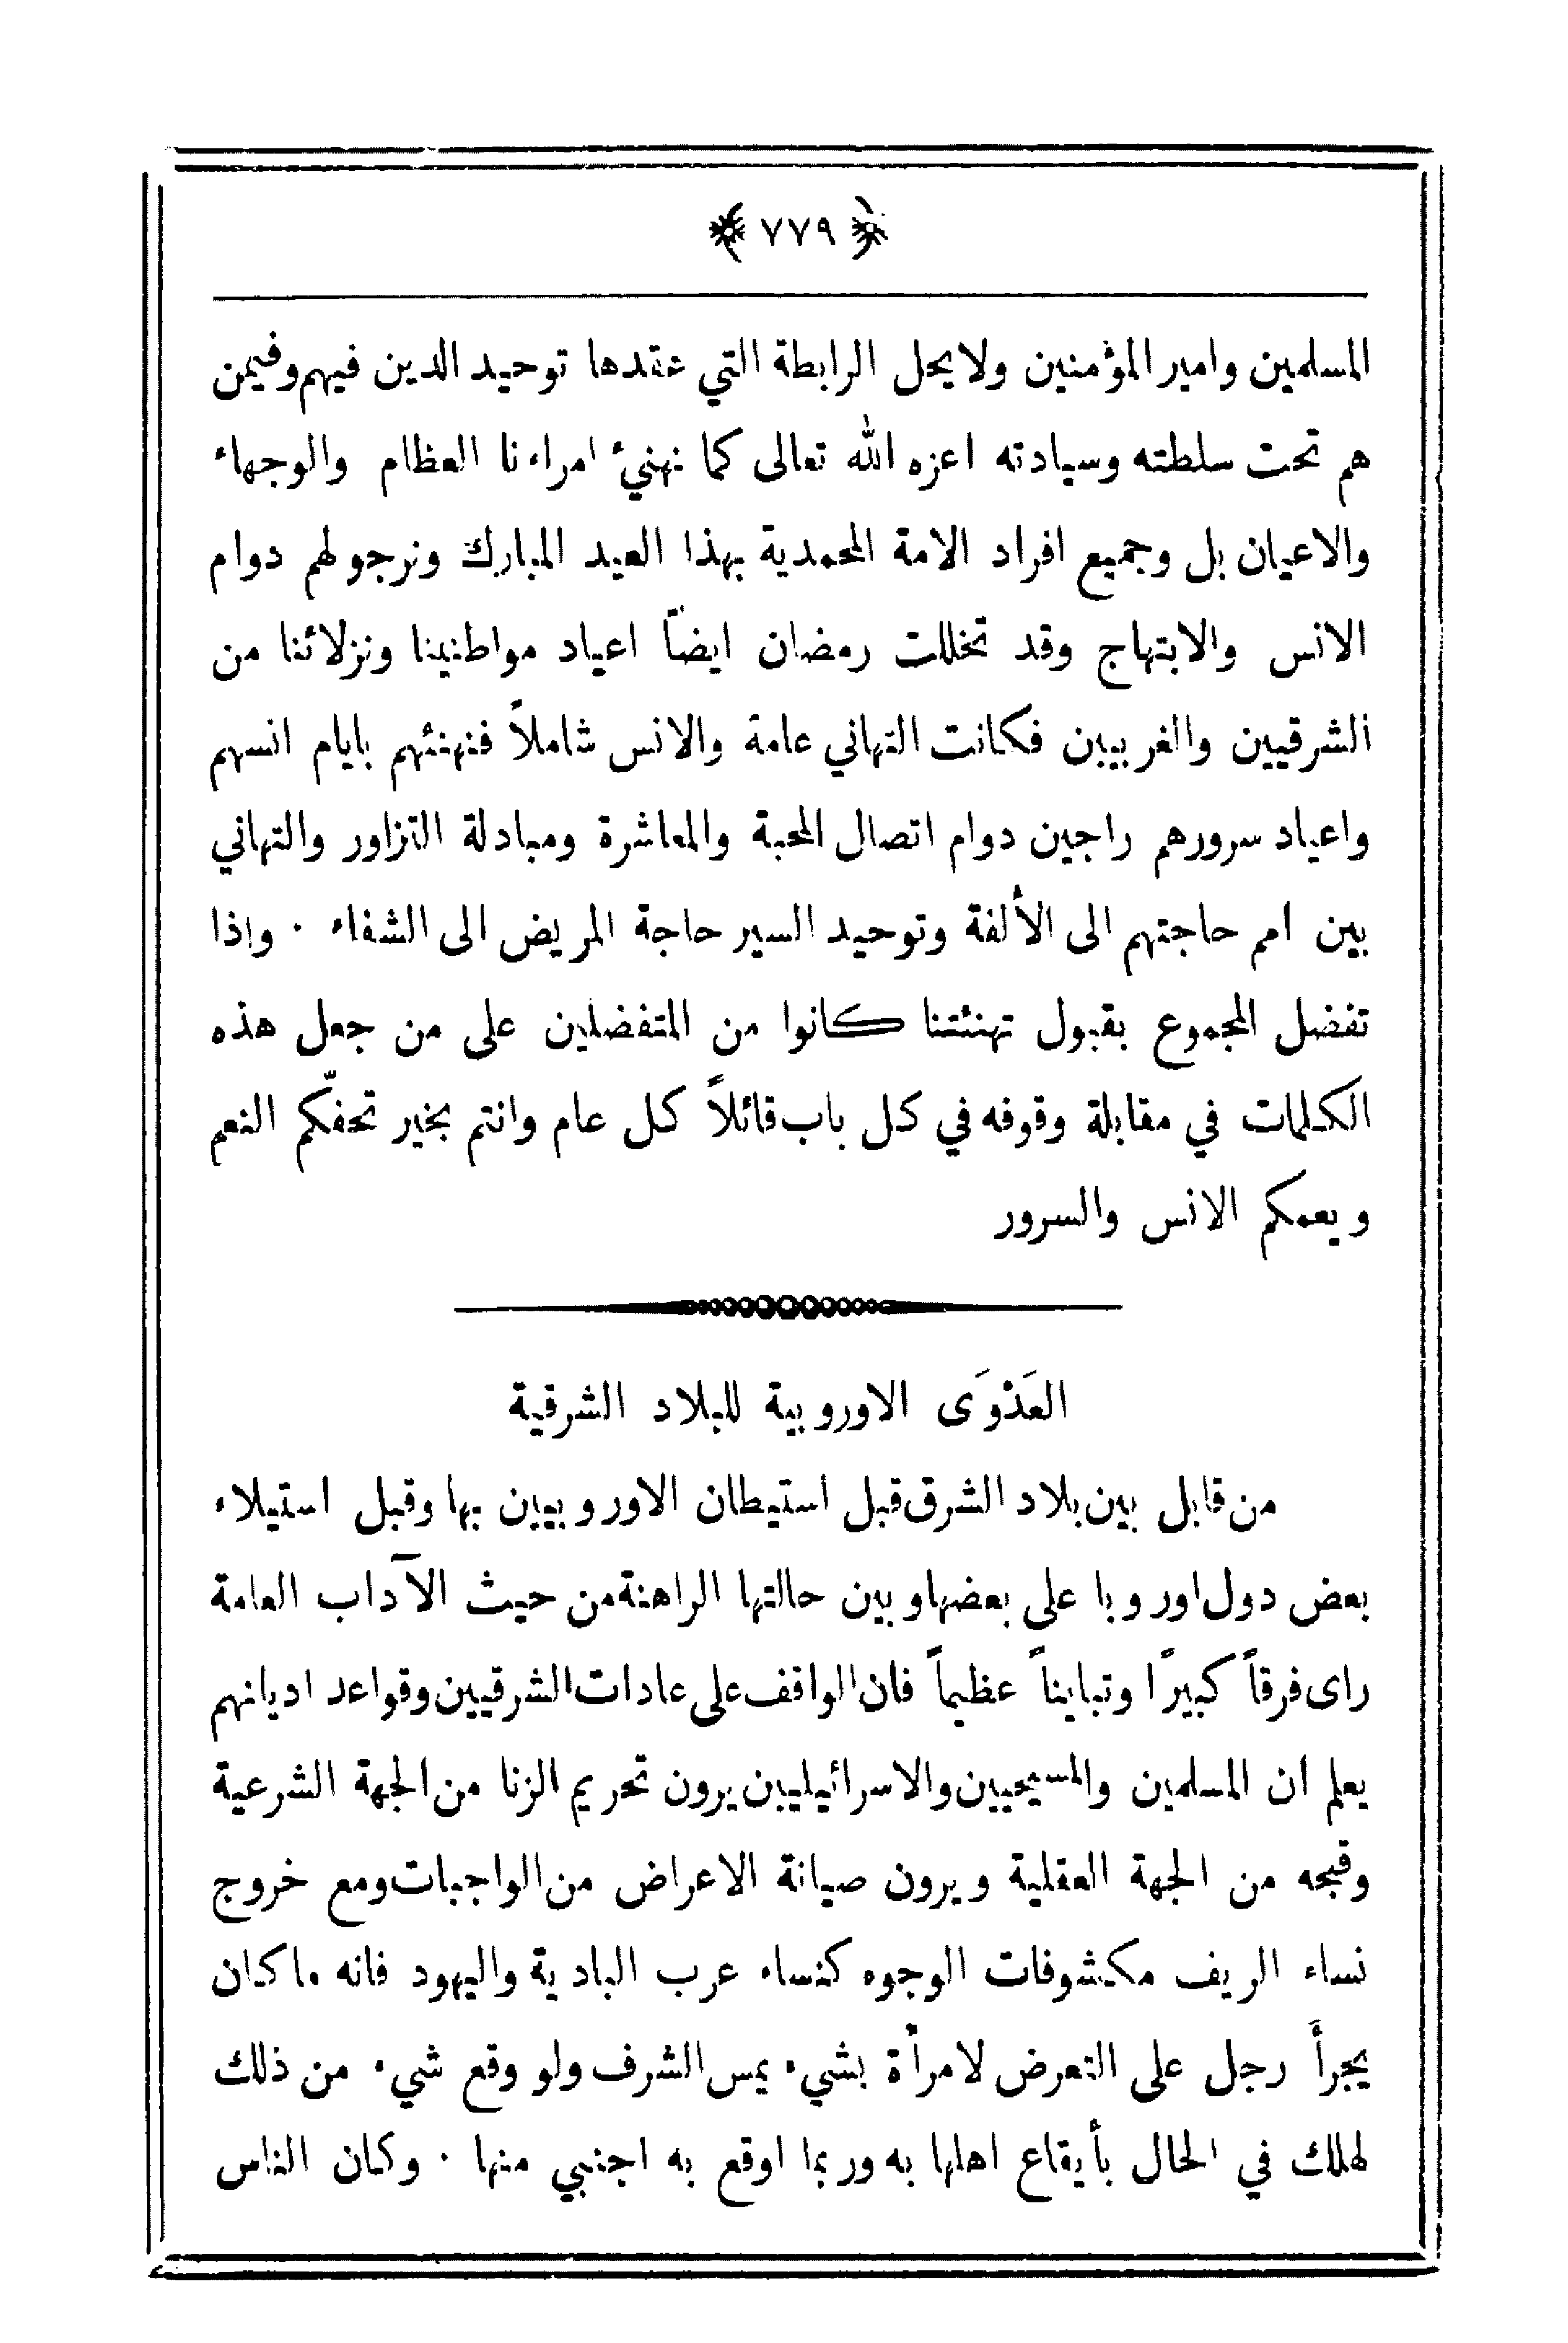 ﴿ ٧٧٩ ﴾
المسلمين وامير المؤمنين ولا يحل الرابطة التي عقدها توحيد الدين فيهم وفيمن
هم تحت سلطته وسيادته اعزه الله تعالى كما نهنيء امراءنا العظام والوجهاء
والاعيان بل وجميع افراد الامة المحمدية بهذا العيد المبارك ونرجو لهم دوام
الانس والابتهاج وقد تخللت رمضان ايضاً اعياد مواطنينا ونزلائنا من
الشرقيين والغربيين فكانت التهاني عامة والانس شاملاً فنهنئهم بايام انسهم
واعياد سرورهم راجين دوام اتصال المحبة والمعاشرة ومبادلة التزاور والتهاني
بين امم حاجتهم الى الألفة وتوحيد السير حاجة المريض الى الشفاء ٠ واذا
تفضل المجموع بقبول تهنئتنا كانوا من المتفضلين على من جعل هذه
الكلمات في مقابلة وقوفه في كل باب قائلاً كل عام وانتم بخير تحفّكم النعم
ويعمكم الانس والسرور
العَدْوَى الاوروبية للبلاد الشرقية
من قابل بين بلاد الشرق قبل استيطان الاوروبيين بها وقبل استيلاء
بعض دول اوروبا على بعضها وبين حالتها الراهنة من حيث الآداب العامة
راى فرقاً كبيرًا وتبايناً عظيماً فان الواقف على عادات الشرقيين وقواعد اديانهم
يعلم ان المسلمين والمسيحيين والاسرائيليين يرون تحريم الزنا من الجهة الشرعية
وقبحه من الجهة العقلية ويرون صيانة الاعراض من الواجبات ومع خروج
نساء الريف مكشوفات الوجوه كنساء عرب البادية واليهود فانه ما كان
يجرأَ رجل على التعرض لامرأة بشيء يمس الشرف ولو وقع شيء من ذلك
لهلك في الحال بأيقاع اهلها به وربما اوقع به اجنبي منها ٠ وكان الناس